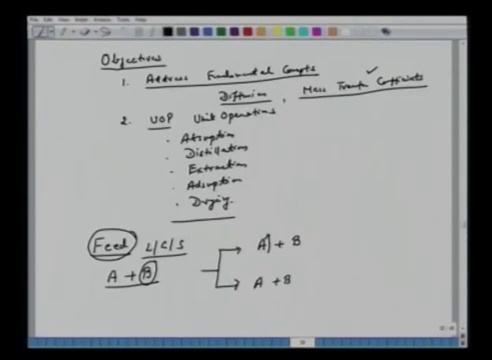 Objectives
1. Address Fundamental Concepts
Diffusion, Mass Transfer Coefficients
2. UOP Unit Operations
. Absorption
. Distillation
. Extraction
. Adsorption
. Drying.
Feed L/G/S
A + B
A + B
A + B